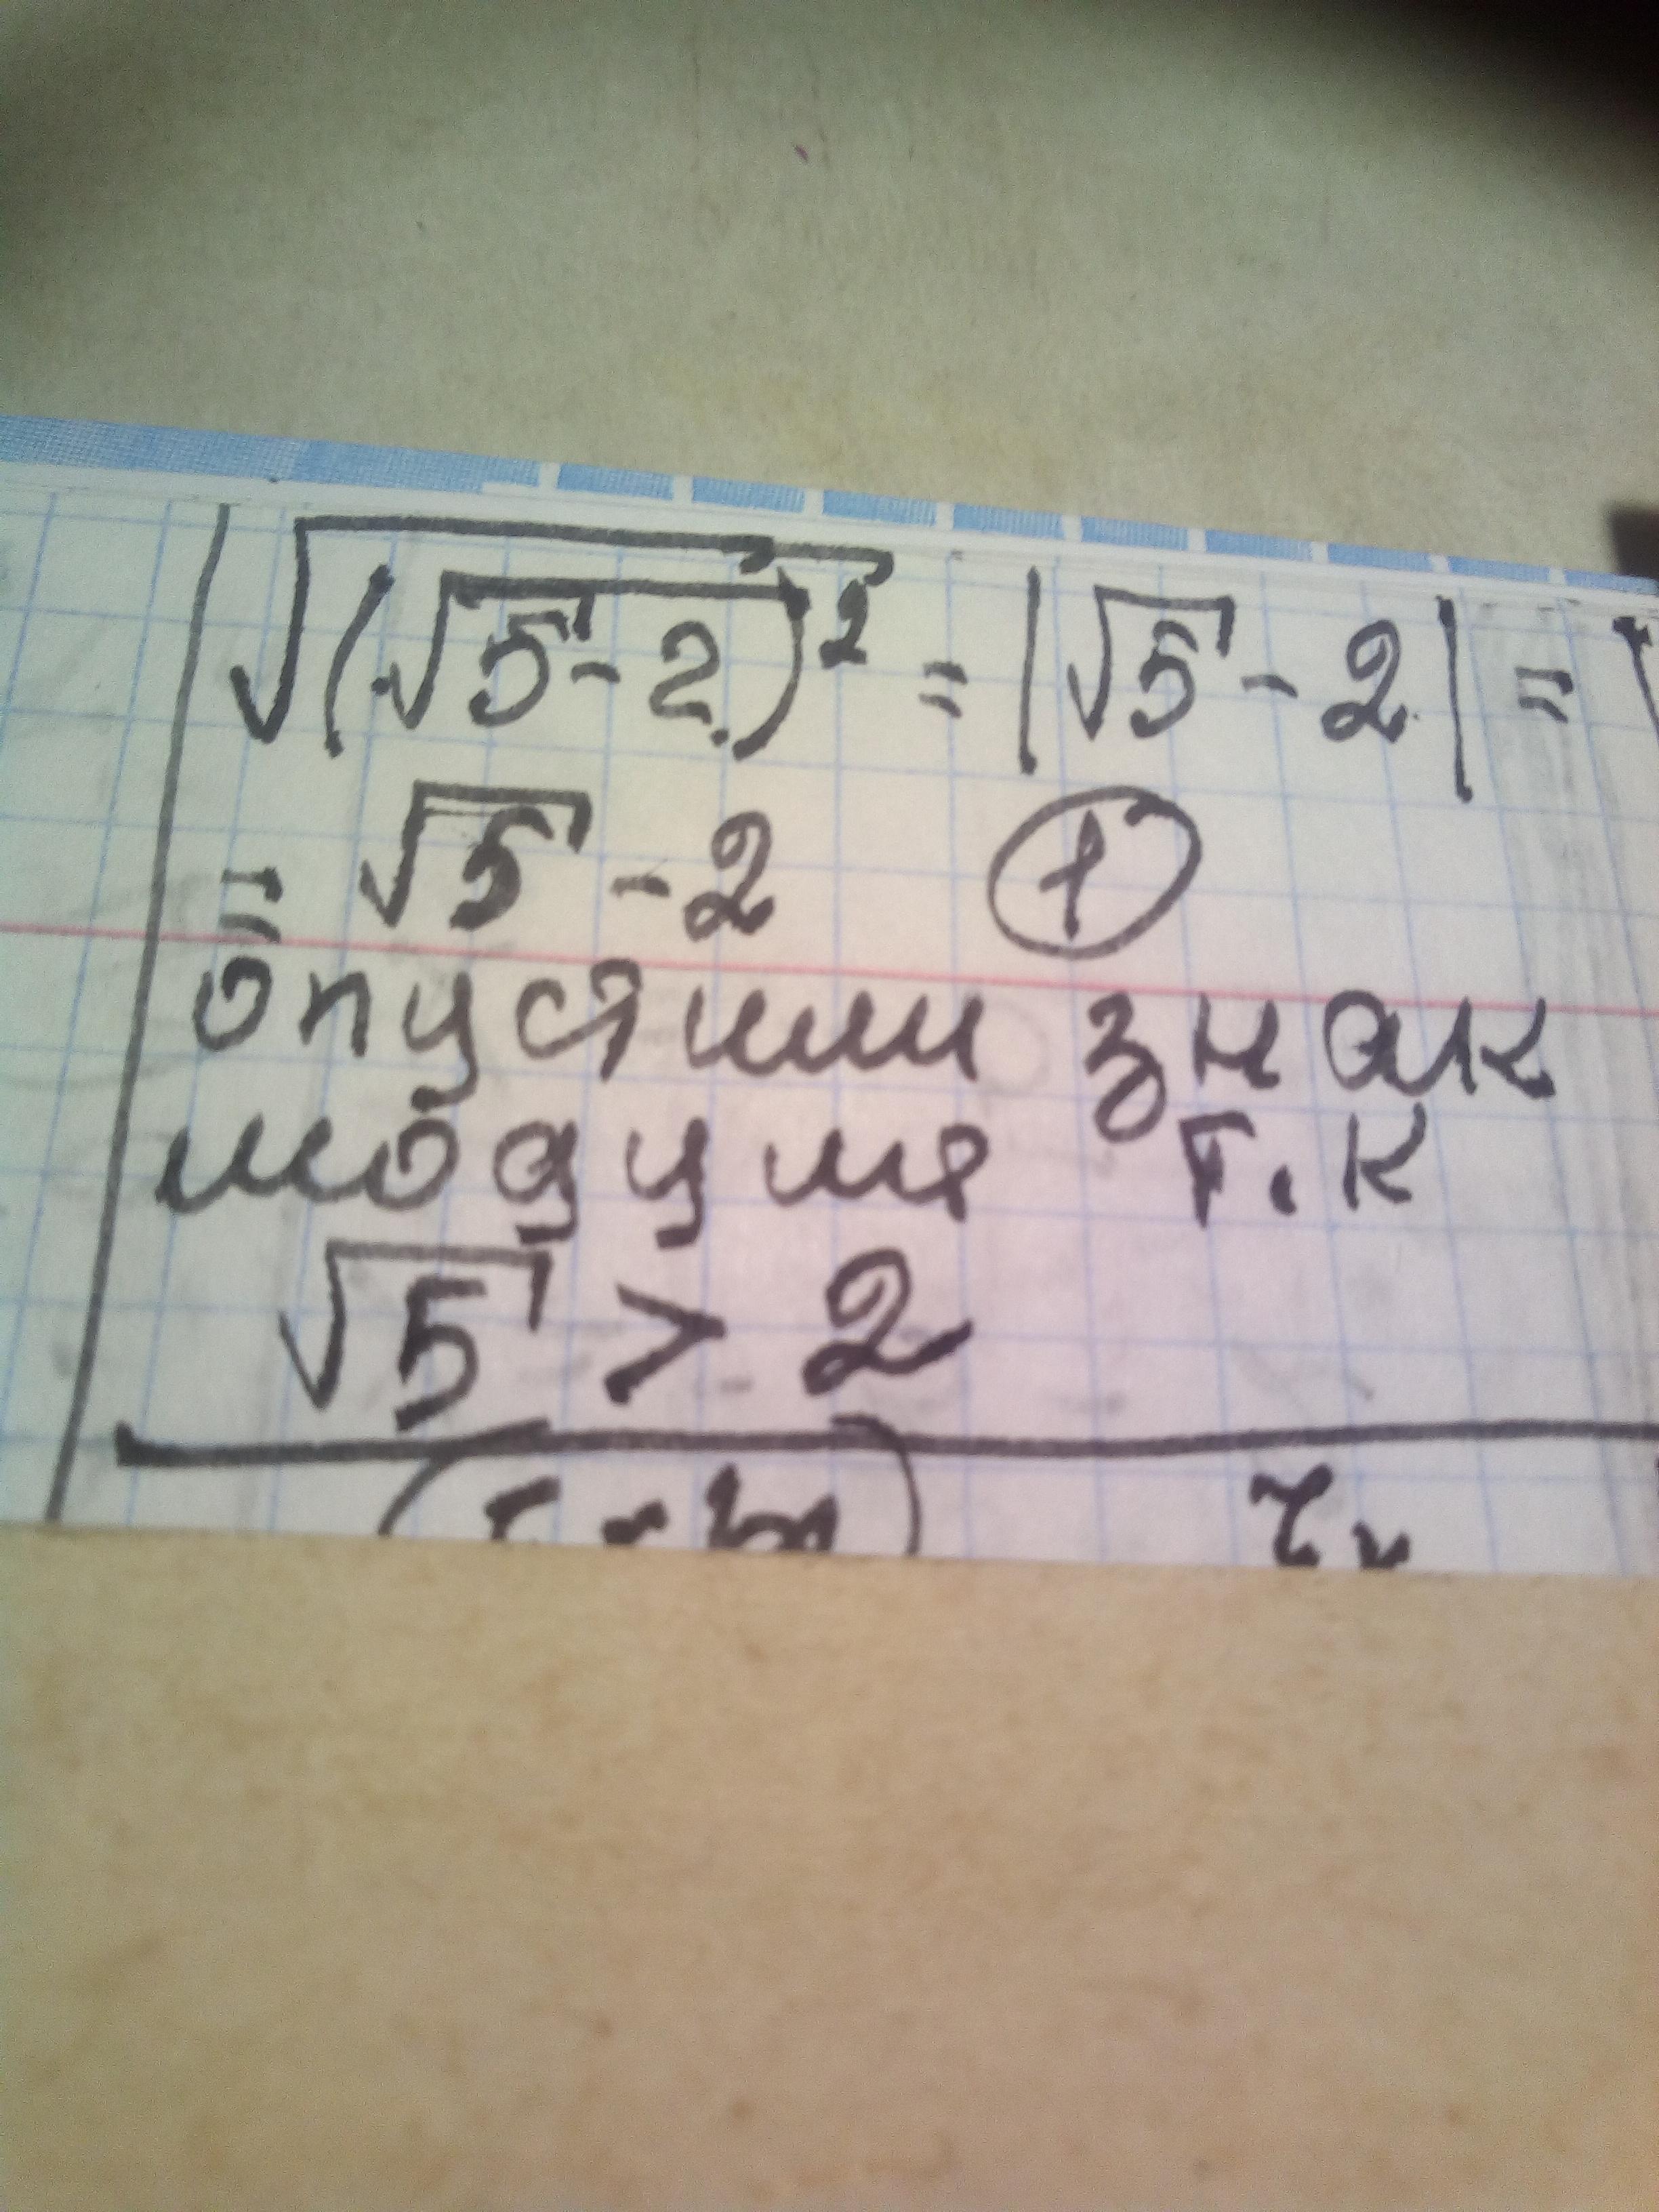 √(√5-2)² = |√5-2| =
= √5-2 ①
опустили знак
модуля т.к
√5 > 2